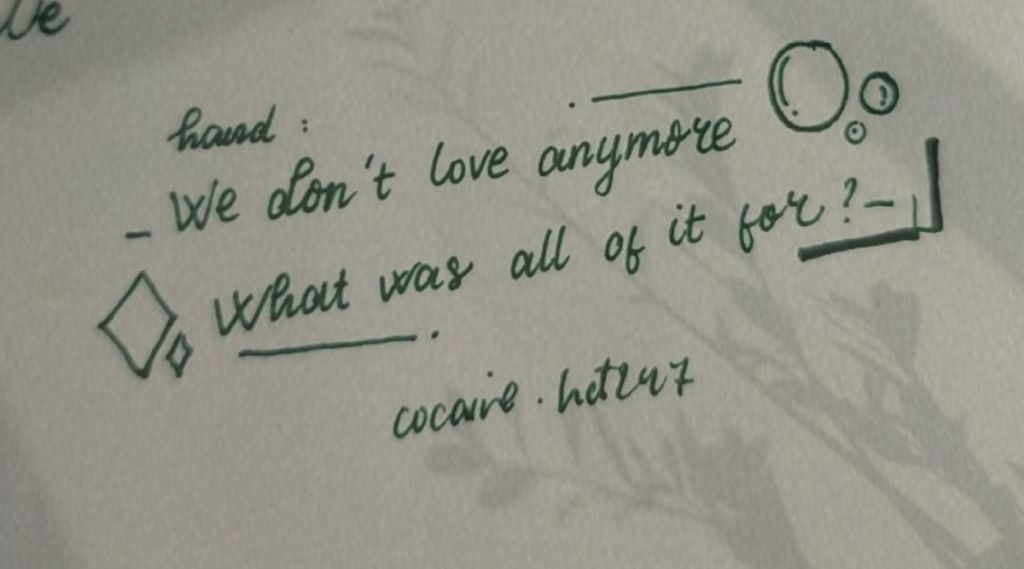 We
hand :
- We don't love anymore
What was all of it for? -
cocaire.hdt247